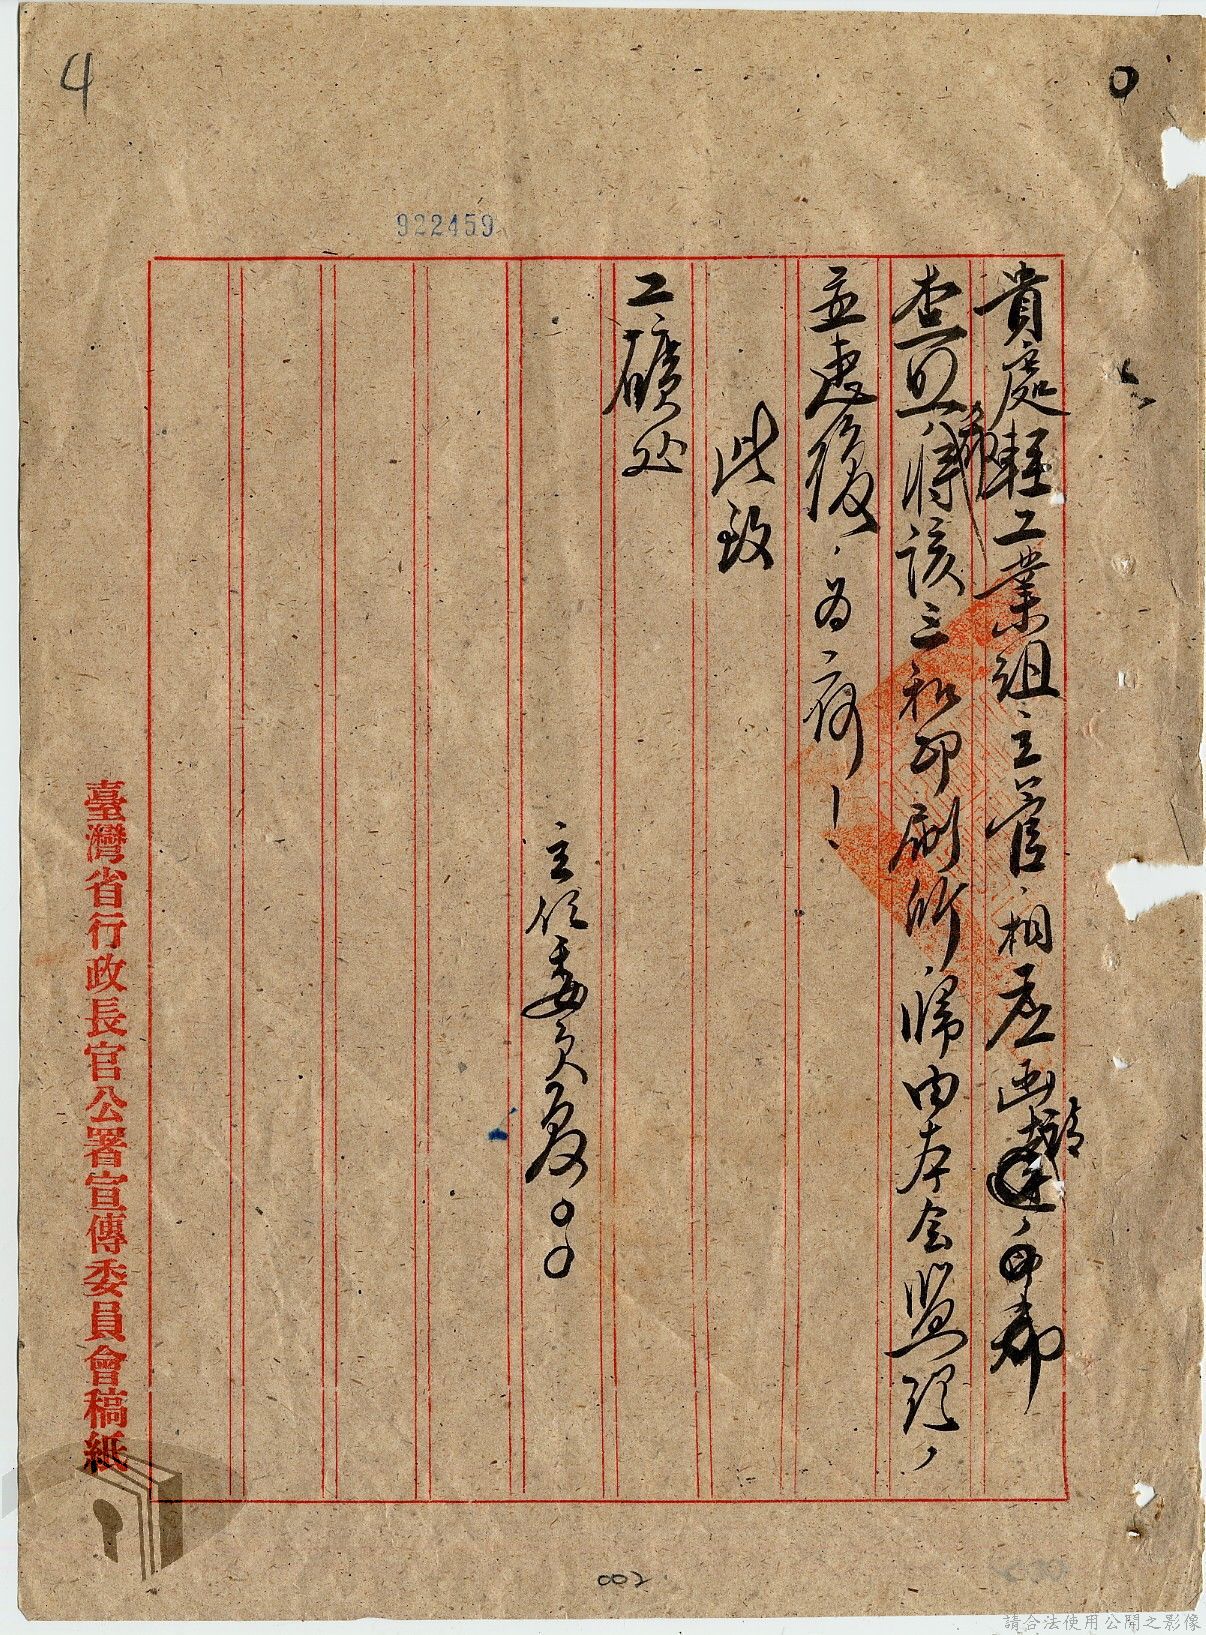 4
0
922459
貴處輕工業組主管,相應函請
查照,將該三和印刷所歸由本会監理,
並惠復,为荷!
此致
工礦处
主任委員夏○○
臺灣省行政長官公署宣傳委員會稿紙
002
請合法使用公開之影像